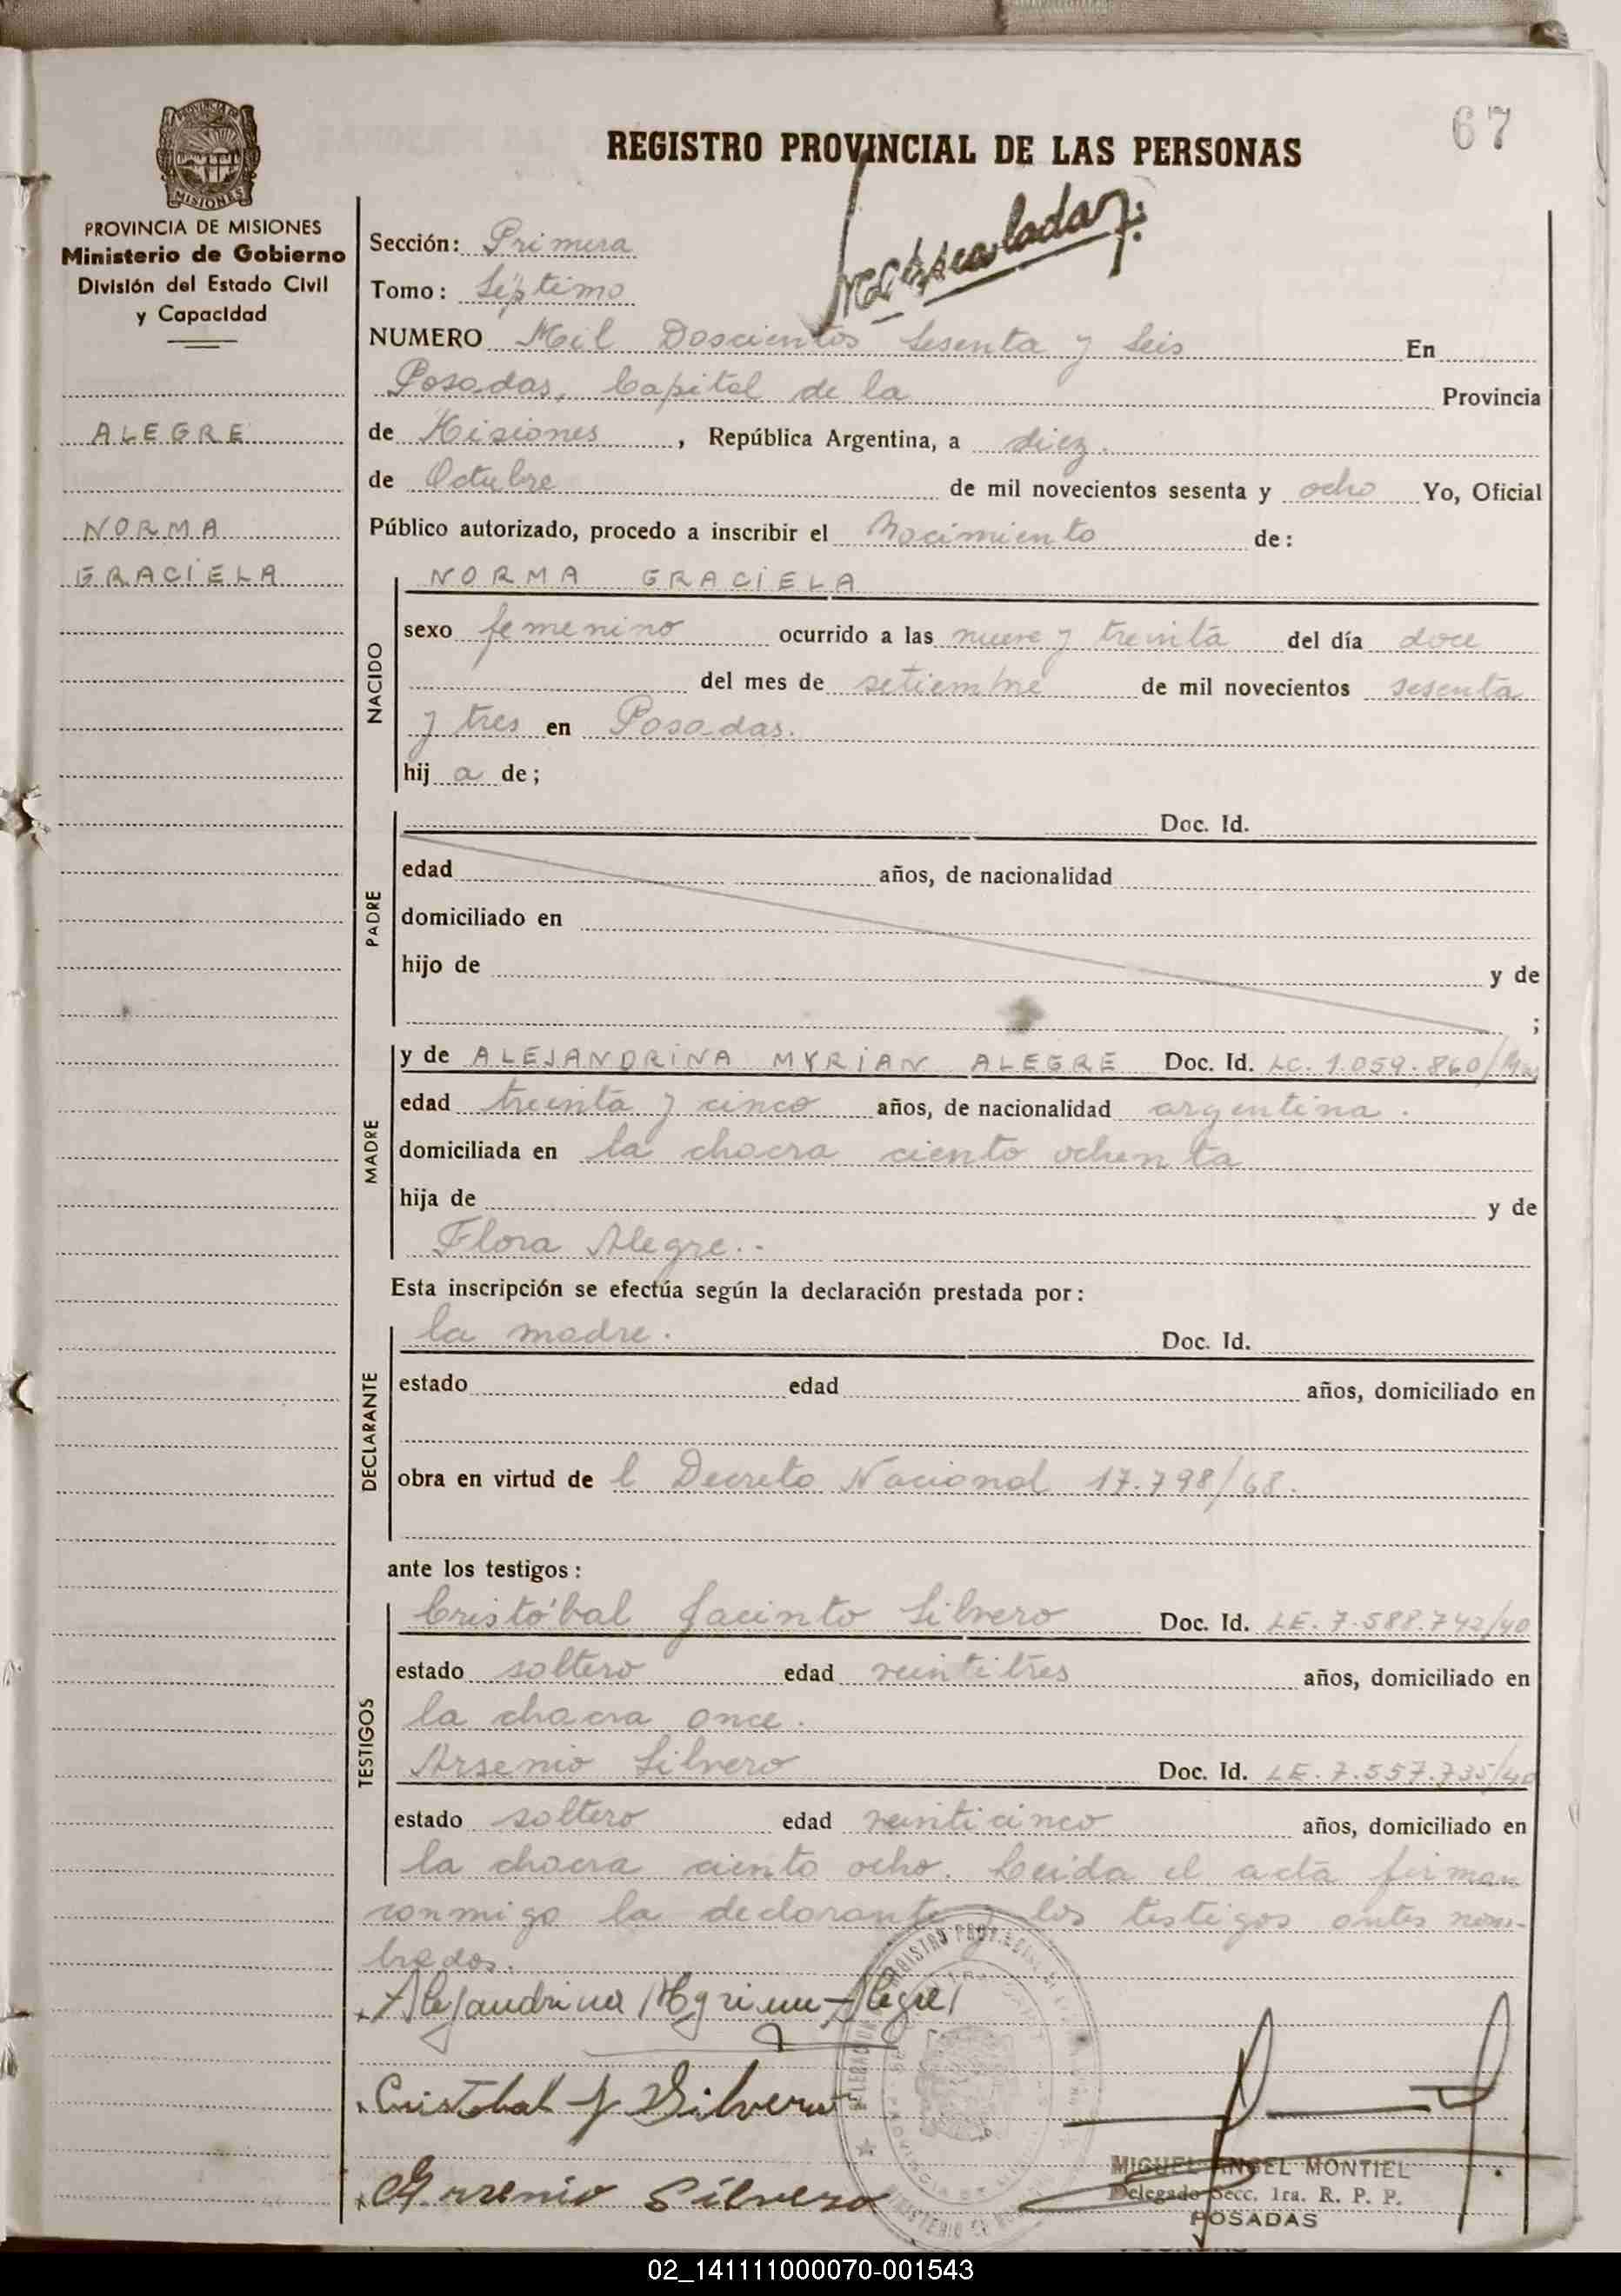 67
REGISTRO PROVINCIAL DE LAS PERSONAS
PROVINCIA DE MISIONES
MISIONES
PROVINCIA DE MISIONES
Ministerio de Gobierno
División del Estado Civil
y Capacidad
ALEGRE
NORMA
GRACIELA
Sección: Primera
Tomo: Séptimo
NUMERO Mil Doscientos Sesenta y Seis En
Posadas, Capital de la Provincia
de Misiones, República Argentina, a diez.
de Octubre de mil novecientos sesenta y ocho Yo, Oficial
Público autorizado, procedo a inscribir el Nacimiento de:
NACIDO
NORMA GRACIELA
sexo femenino ocurrido a las nueve y treinta del día doce
del mes de setiembre de mil novecientos sesenta
y tres en Posadas.
hij a de;
PADRE
Doc. Id.
edad años, de nacionalidad
domiciliado en
hijo de y de
;
MADRE
y de ALEJANDRINA MYRIAN ALEGRE Doc. Id. LC. 1.059.860/
edad treinta y cinco años, de nacionalidad argentina.
domiciliada en la chacra ciento ochenta
hija de y de
Flora Alegre.-
Esta inscripción se efectúa según la declaración prestada por:
DECLARANTE
la madre. Doc. Id.
estado edad años, domiciliado en
obra en virtud de l Decreto Nacional 17.798/68.
ante los testigos:
TESTIGOS
Cristóbal Jacinto Silvero Doc. Id. LE. 7.588.742/40
estado soltero edad veintitres años, domiciliado en
la chacra once.
Arsenio Silvero Doc. Id. LE. 7.557.735/40
estado soltero edad veinticinco años, domiciliado en
la chacra ciento ocho. Leida el acta firman
conmigo la declarante y los testigos antes nom-
brados.
Alejandrina Myrian Alegre
Cristobal J Silvero
Arsenio Silvero
MIGUEL ANGEL MONTIEL
Delegado Secc. 1ra. R. P. P.
POSADAS
02_141111000070-001543